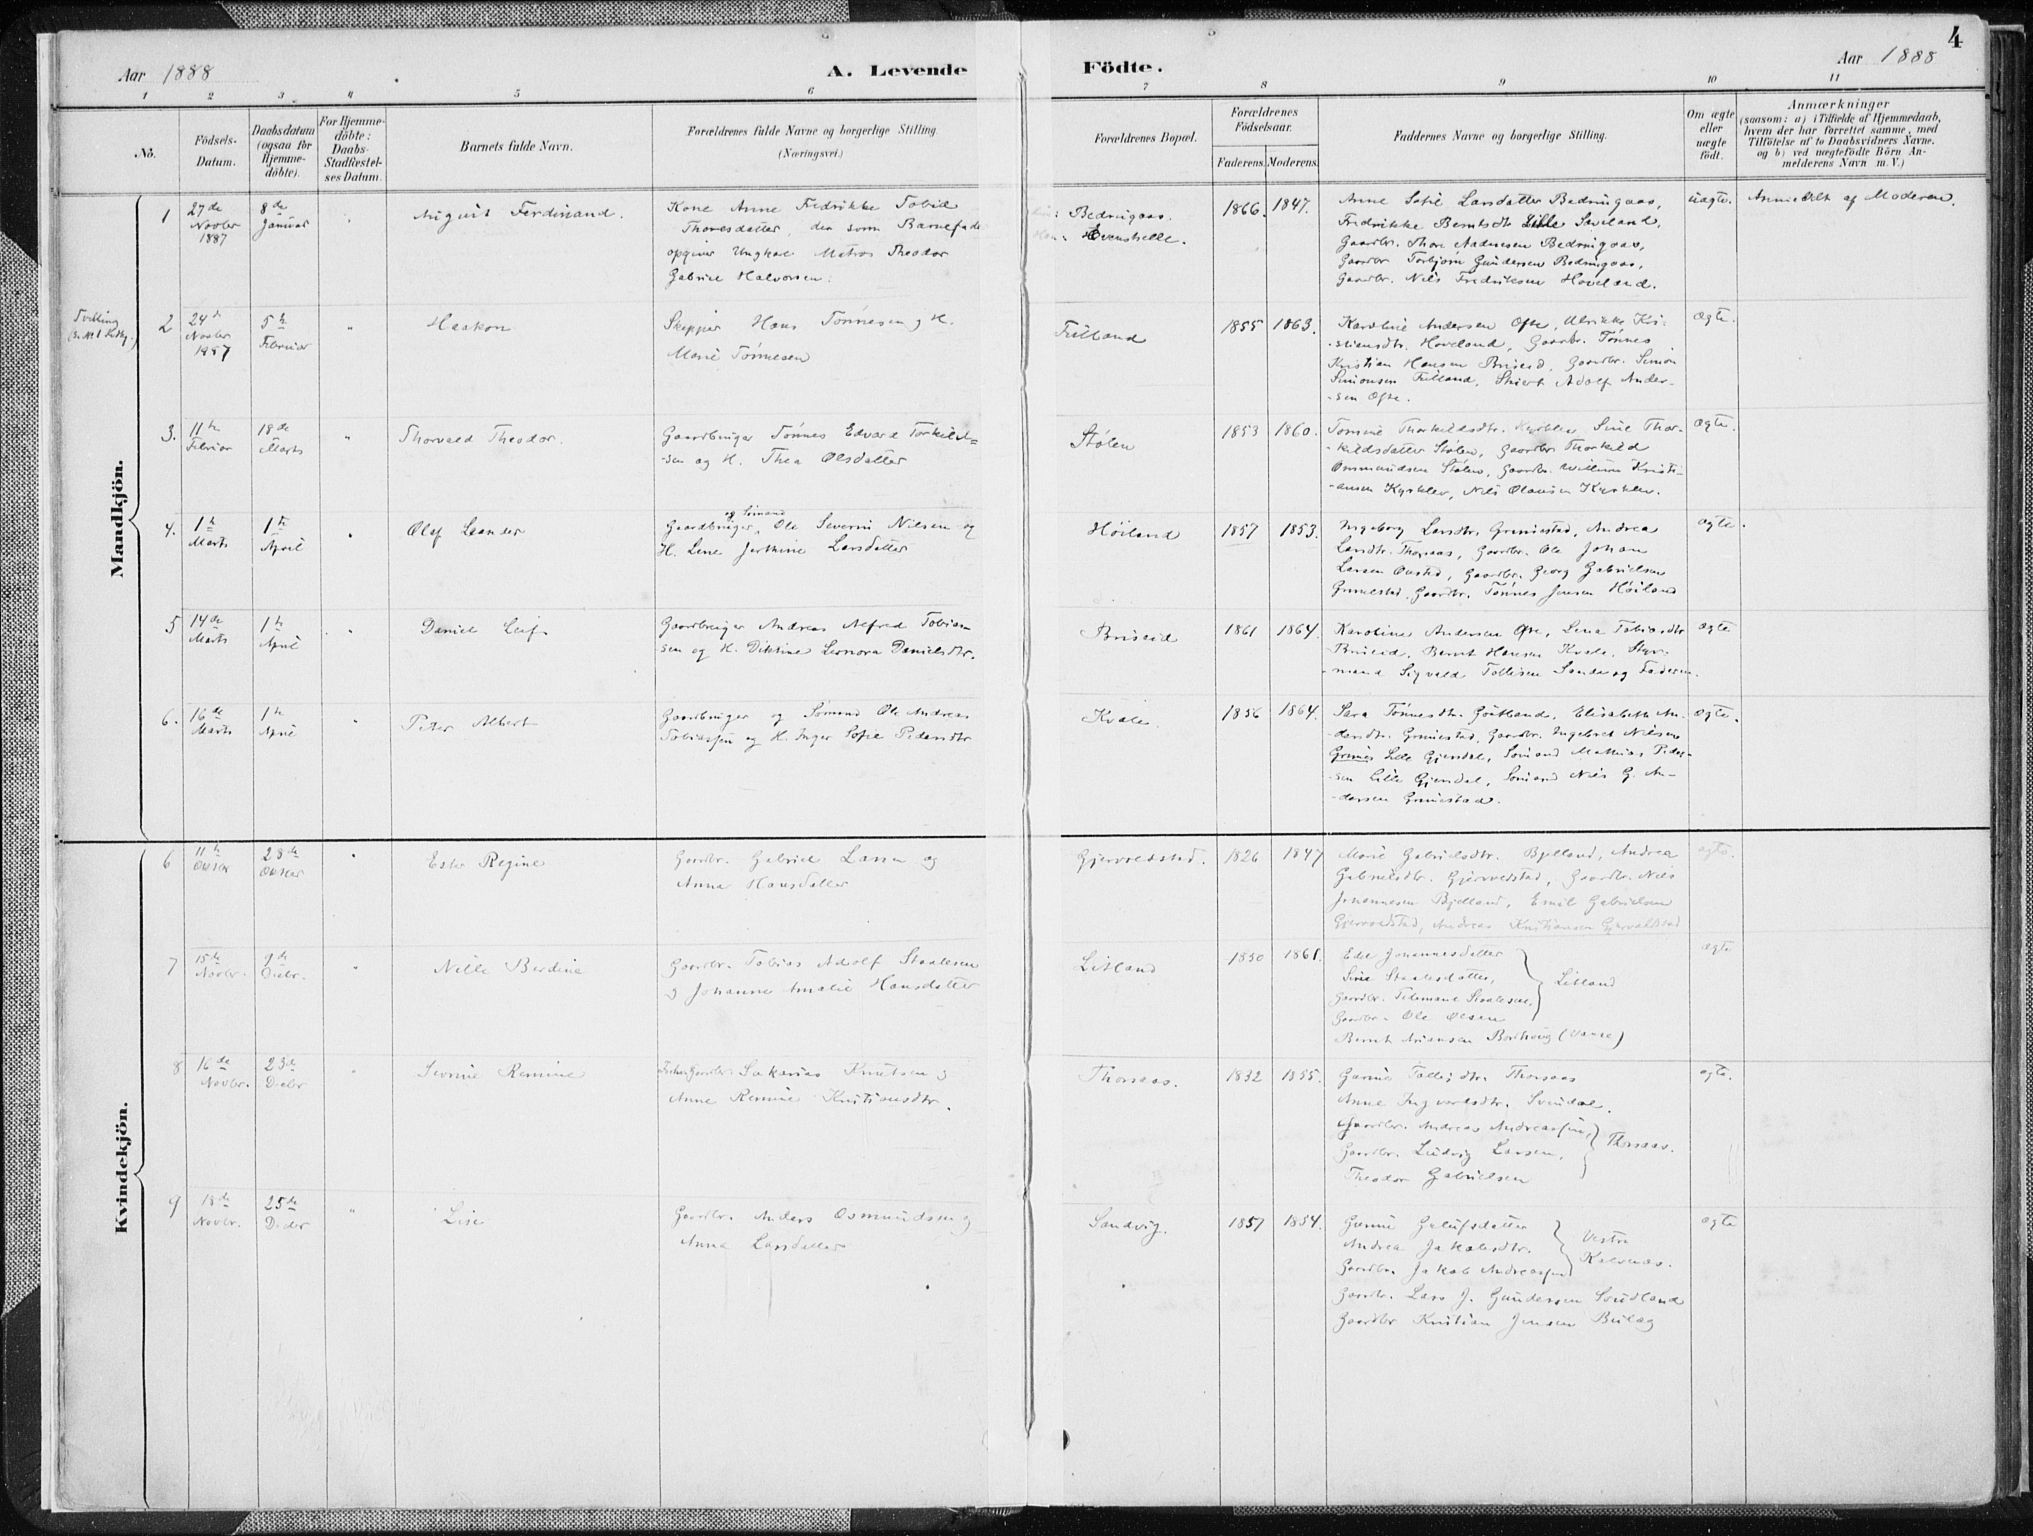 4
Aar 1888
A. Levende Födte.
Aar 1888
1 2 3 4 5 6 7 8 9 10 11
No.
Födsels-
Datum.
Daabsdatum
(ogsaa for
Hjemme-
döbte).
For Hjemme-
döbte:
Daabs-
Stadfæstel-
ses Datum.
Barnets fulde Navn.
Forældrenes fulde Navne og borgerlige Stilling.
(Næringsvei.)
Forældrenes Bopæl.
Forældrenes
Födselsaar.
Faderens. Moderens.
Faddernes Navne og borgerlige Stilling.
Om ægte
eller
uægte
födt.
Anmærkninger
(saasom: a) i Tilfælde af Hjemmedaab,
hvem der har forrettet samme, med
Tilföielse af to Daabsvidners Navne.
og b) ved uægtefödte Börn An-
melderens Navn m. V.)
Mandkjön.
1
27de
Novbr
1887
8de
Januar
August Ferdinand.
Kone Anne Fredrikke Tobia
Thoresdatter, der som Barnefader
opgiver Ungkar Matros Theodor
Gabriel Halvorsen.
Bedringaas.
Evenstelle.
1866. 1847.
Anne Sofie Larsdatter Bedringaas,
Fredrikke Berntsdtr Lille Saveland,
Gaardbr. Thore Aadnesen Bedringaas,
Gaardbr Torbjørn Gundersen Bedringaas,
Gaardbr. Nils Fredriksen Hoveland.
uægte.
Anmeldt af Moderen.
Tvilling
2
24de
Novbr
1887
5te
Februar
Haakon
Skipper Hans Tønnesen og H.
Marie Tønnesen
Fuilland
1855 1863.
Karoline Andersen Ofte, Ulrikke Kri-
-stiansdtr. Hoveland, Gaardbr. Tønnes
Kristian Hansen Briseid, Gaardbr. Simon
Simonsen Fuiland, Adolf Ander-
-sen Ofte.
ægte.
3.
11te
Februar
18de
Marts
Thorvald Theodor.
Gaardbruger Tønnes Edvard Torkild-
-sen og H. Thea Olsdatter
Stølen
1853 1860.
Tomine Thorkildsdtr. Kysklev, Sine Thor-
-kildsdatter Stølen, Gaardbr Thorkild
Osmundsen Stølen, Gaardbr. William Kristi-
-ansen Kysklev, Nils Olausen Kysklev.
ægte.
4.
1te
Marts
1te
April
Olaf Leander
og Sømand
Gaardbruger, Ole Severin Nilsen og
H. Lene Jørthine Larsdatter
Høiland
1857 1853.
Ingeborg Larsdtr. Grimestad, Andrea
Larsdtr. Thorsaas, Gaardbr. Ole Johan
Larsen Onstad, Gaardbr. Georg Gabrielsen
Grimestad. Gaardbr. Tønnes Jensen Høiland
ægte.
5
14de
Marts
1te
April
Daniel Leif
Gaardbruger Andreas Alfred Tobias-
sen og H. Diktine Leonora Danielsdtr.
Briseid
1861 1864.
Karoline Andersen Ofte, Lena Tobiasdtr
Briseid, Bernt Hansen Kvale, Styr-
mand Sigvald Tollisen Sande og Faderen.
ægte
6.
16de
Marts
1te
April
Peter Albert
Gaardbruger og Sømand Ole Andreas
Tobiassen og H. Inger Sofie Pedersdtr
Kvale.
1856 1864.
Sara Tønnesdtr. Gøitland, Elisabeth An-
-dersdtr. Grimestad, Gaardbr. Ingebret Nilsen
Grimes Lille Gjersdal, Sømand Mathias Peder-
-sen Lille Gjersdal, Sømand Nils G. An-
-dersen Grimestad.
ægte.
Kvindekjön.
6
11te
Oktbr
28de
Oktbr
Ester Regine
Gaardbr. Gabriel Larsen og
Anna Hansdatter
Gjervoldstad.
1826 1847
Marie Gabrielsdtr. Bjelland, Andrea
Gabrielsdtr. Gjervoldstad, Gaardbr. Nils
Johannesen Bjelland, Emil Gabrielsen
Gjervoldstad, Andreas Kristiansen Gjervoldstad
ægte.
7
15de
Novbr.
9de
Decbr.
Nille Berdine
Gaardbr. Tobias Adolf Staalesen
og Johanne Amalie Hansdatter
Litland
1850 1861.
Edel Johannesdatter
Sine Staalesdatter,
Gaardbr. Tilemand Staalesen,
Gaardbr. Ole Olsen
Litland
Bernt Ariansen Borhaug (Vanse)
ægte
8
16de
Novbr.
23de
Decbr
Severine Remine
Gaardbr. Sakarias Knutsen og
Anne Remine Kristiansdtr.
Thorsaas.
1832 1855.
Gurine Tollisdtr. Thorsaas
Anne Ingvardsdtr. Svindal.
Gaardbr. Andreas Andreassen,
Gaardbr. Ludvig Larsen,
Theodor Gabrielsen
Thorsaas.
ægte.
9
18de
Novbr.
25de
Decbr
Lise
Gaardbr. Anders Osmundsen og
Anna Larsdatter
Sandvig.
1857 1854.
Gurine Galufsdatter
Andrea Jakobsdtr.
Gaardbr. Jakob Andreassen
Vestre
Kalvenes.
Gaardbr. Lars J. Gundersen Sundland
Gaardbr Kristian Jensen Birlag
ægte